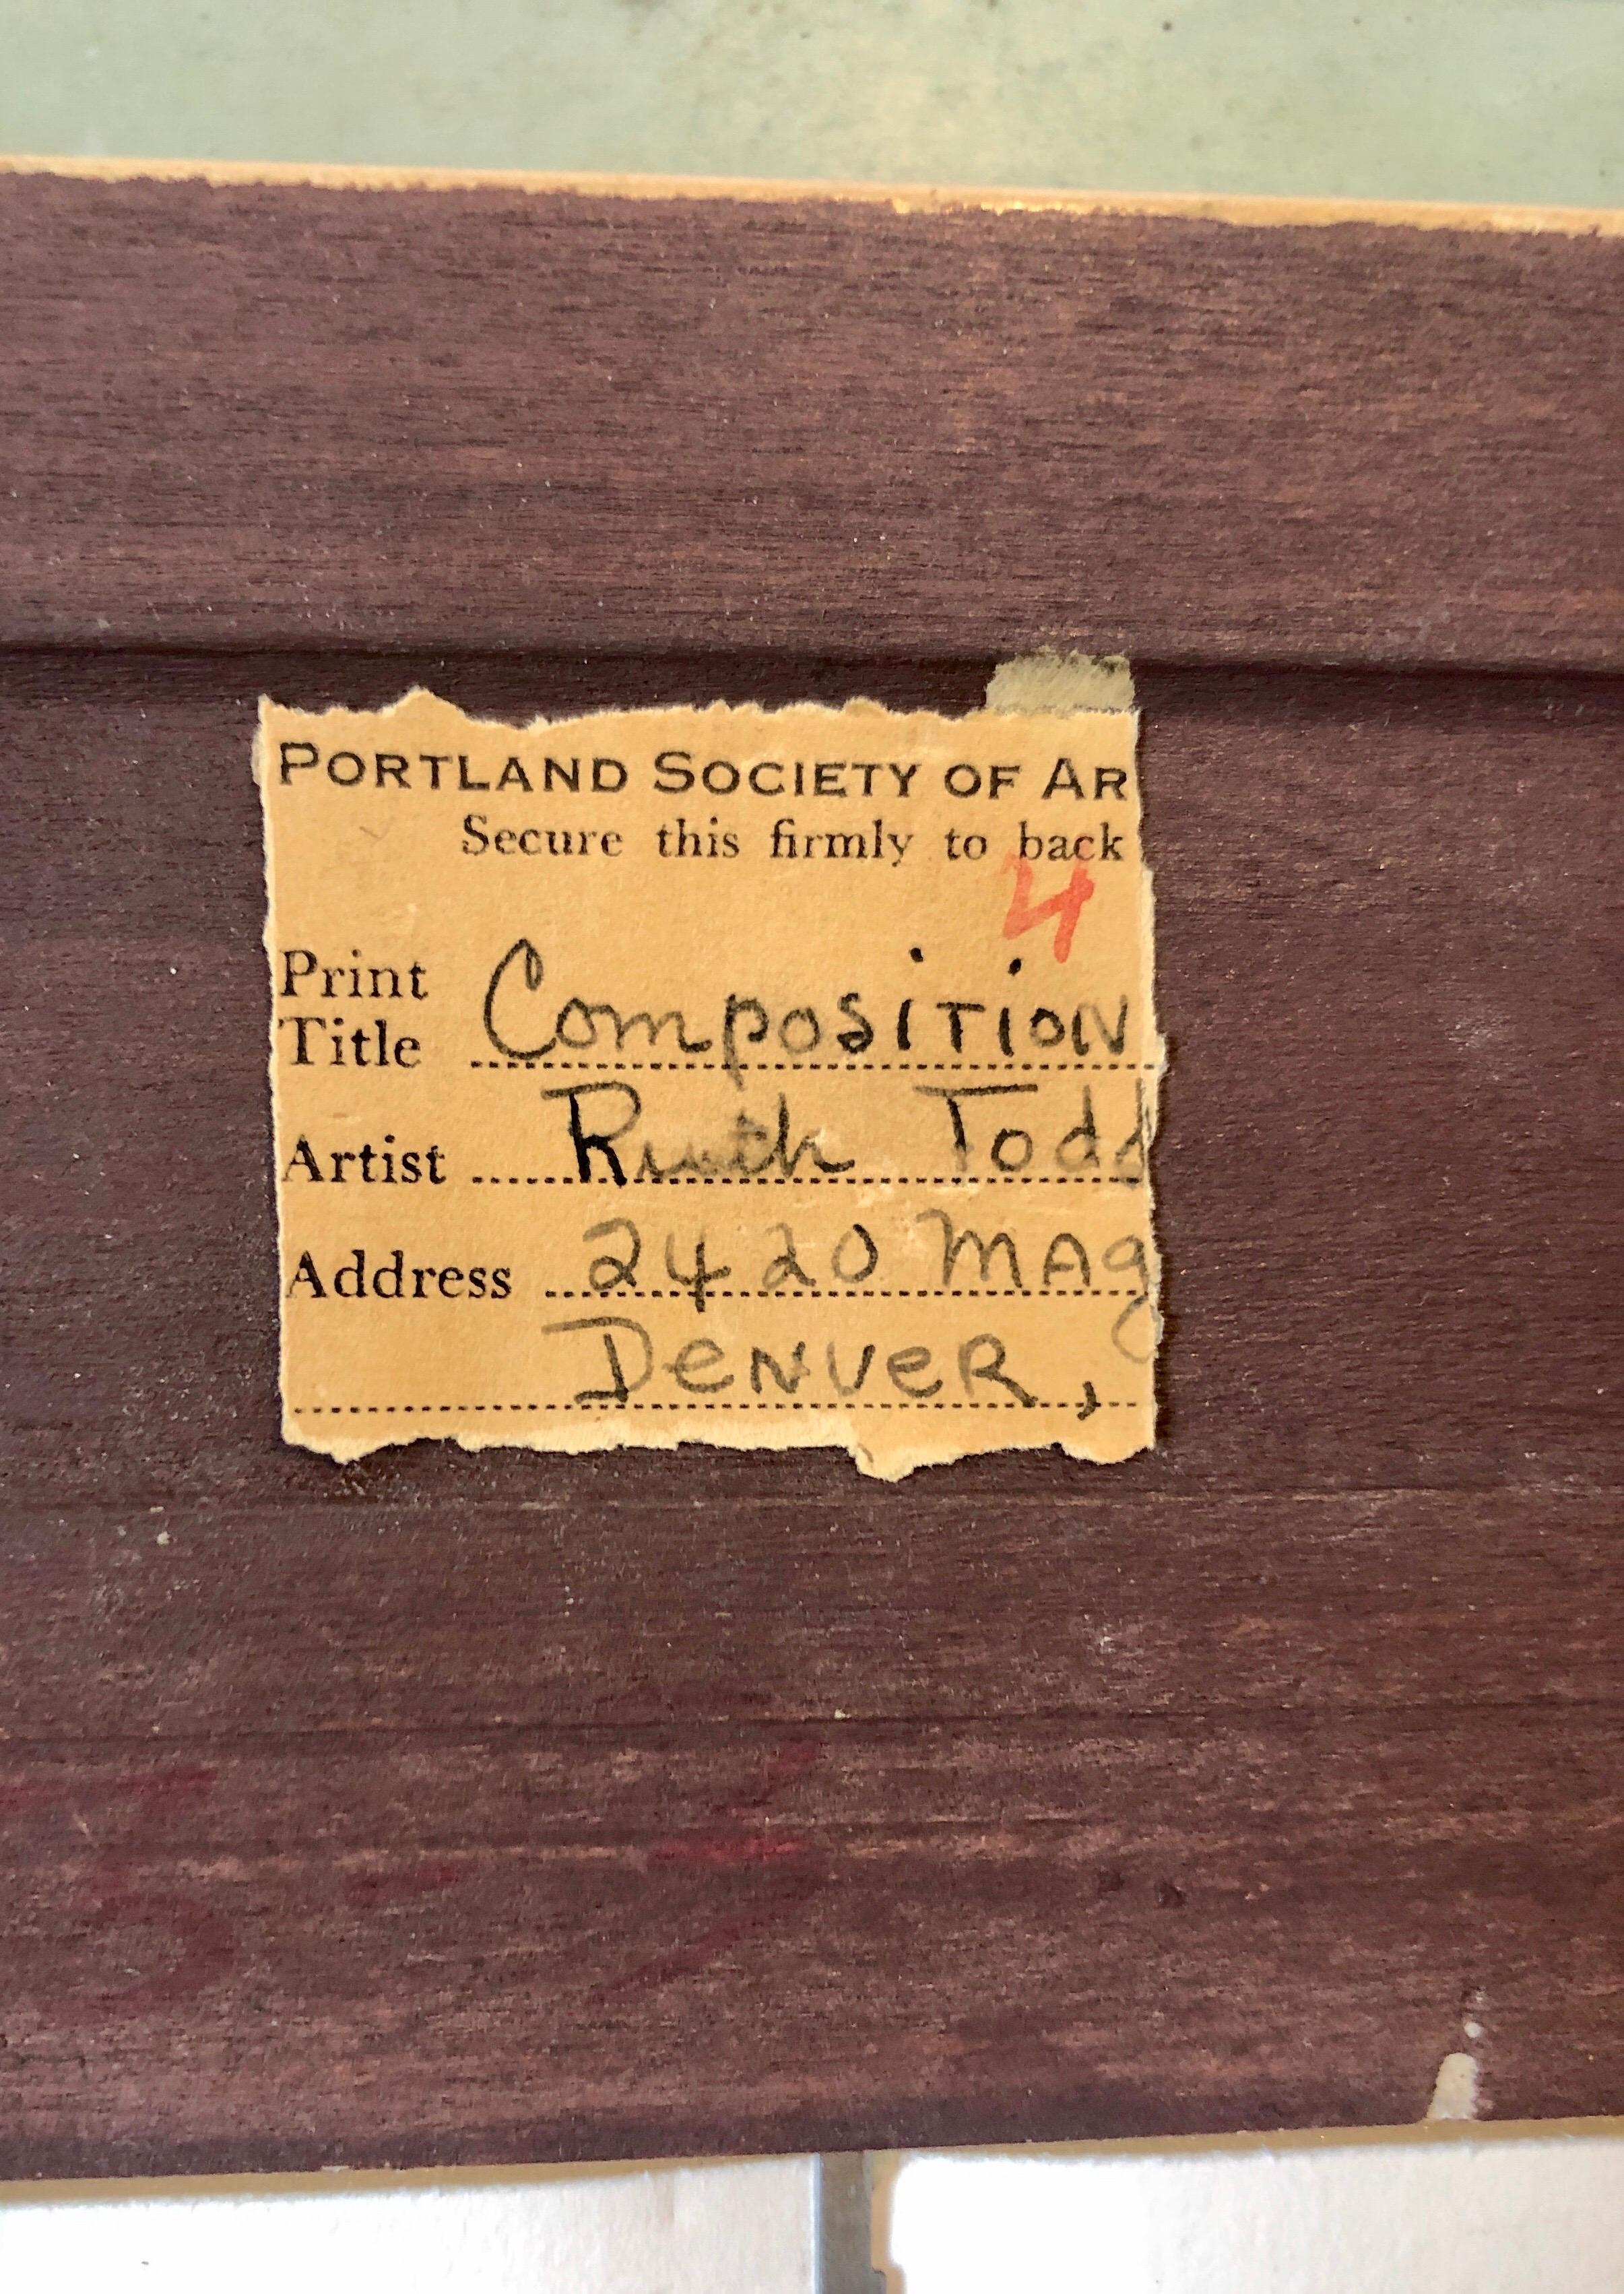 PORTLAND SOCIETY OF AR
Secure this firmly to back
4
Print Title Composition
Artist Ruth Todd
Address 2420 Mag
Denver,